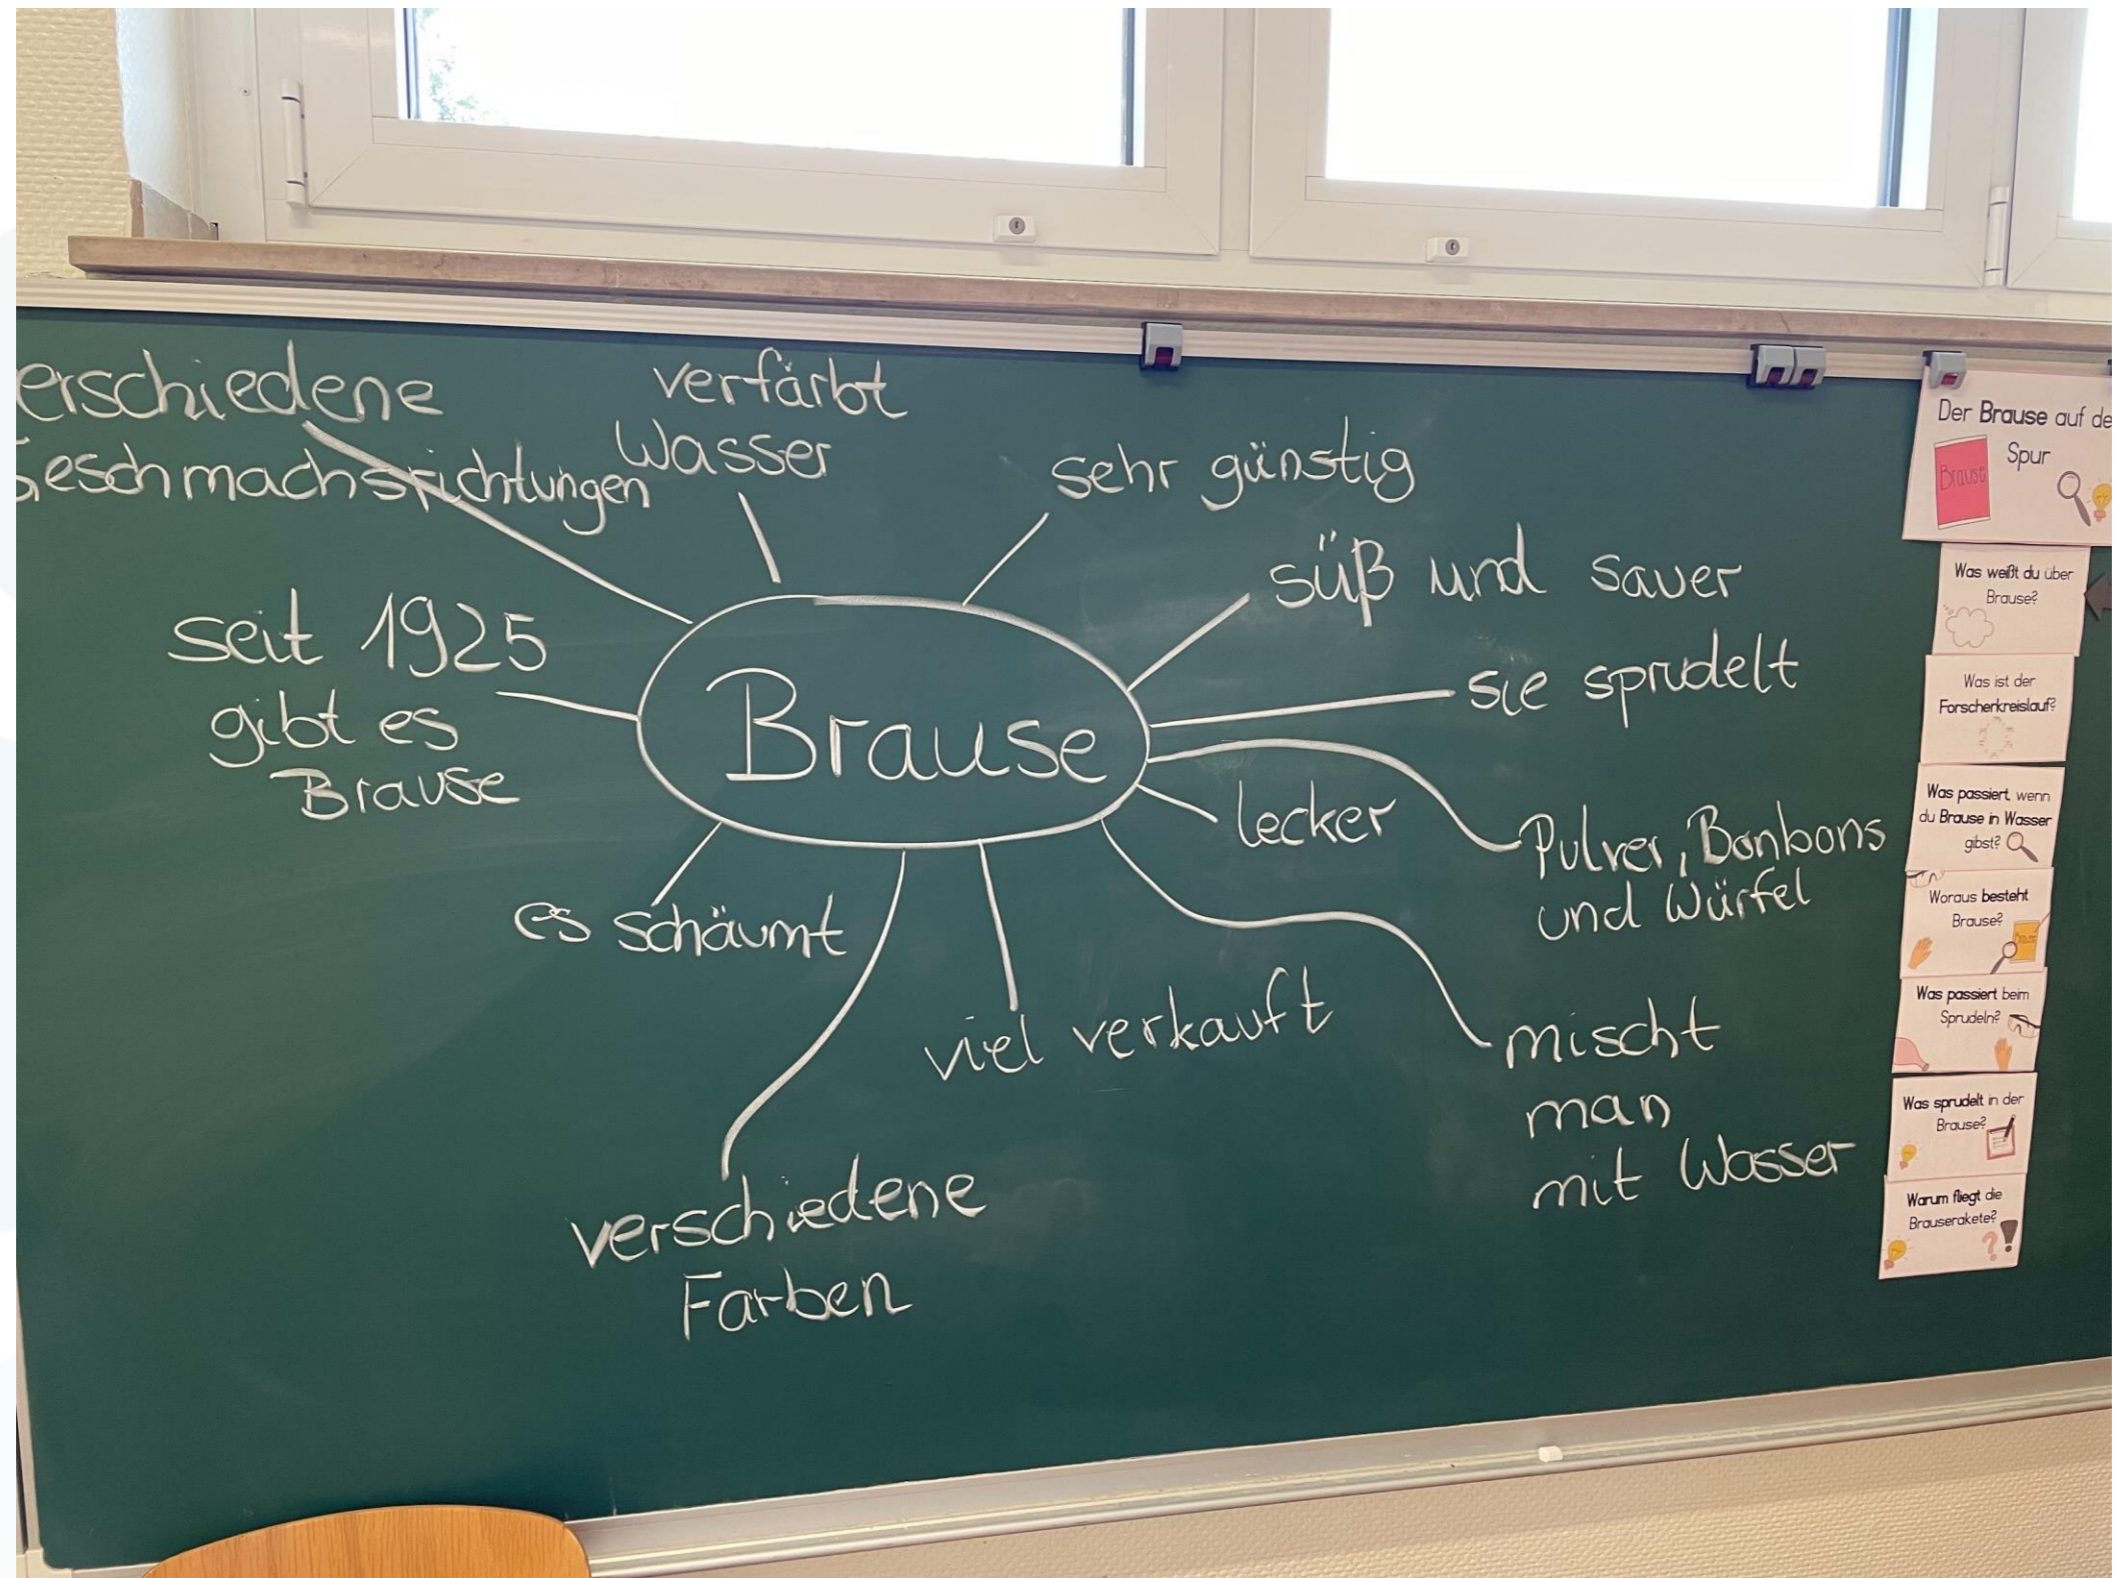 erschiedene
Geschmachsrichtungen
verfärbt
Wasser
sehr günstig
süß und sauer
sie sprudelt
seit 1925
gibt es
Brause
Brause
lecker
Pulver, Bonbons
und Würfel
es schäumt
viel verkauft
mischt
man
mit Wasser
verschiedene
Farben
Der Brause auf de
Spur
Brause
Was weißt du über
Brause?
Was ist der
Forscherkreislauf?
Was passiert, wenn
du Brause in Wasser
gibst?
Woraus besteht
Brause?
Brause
Was passiert beim
Sprudeln?
Was sprudelt in der
Brause?
Warum fliegt die
Brauserakete?